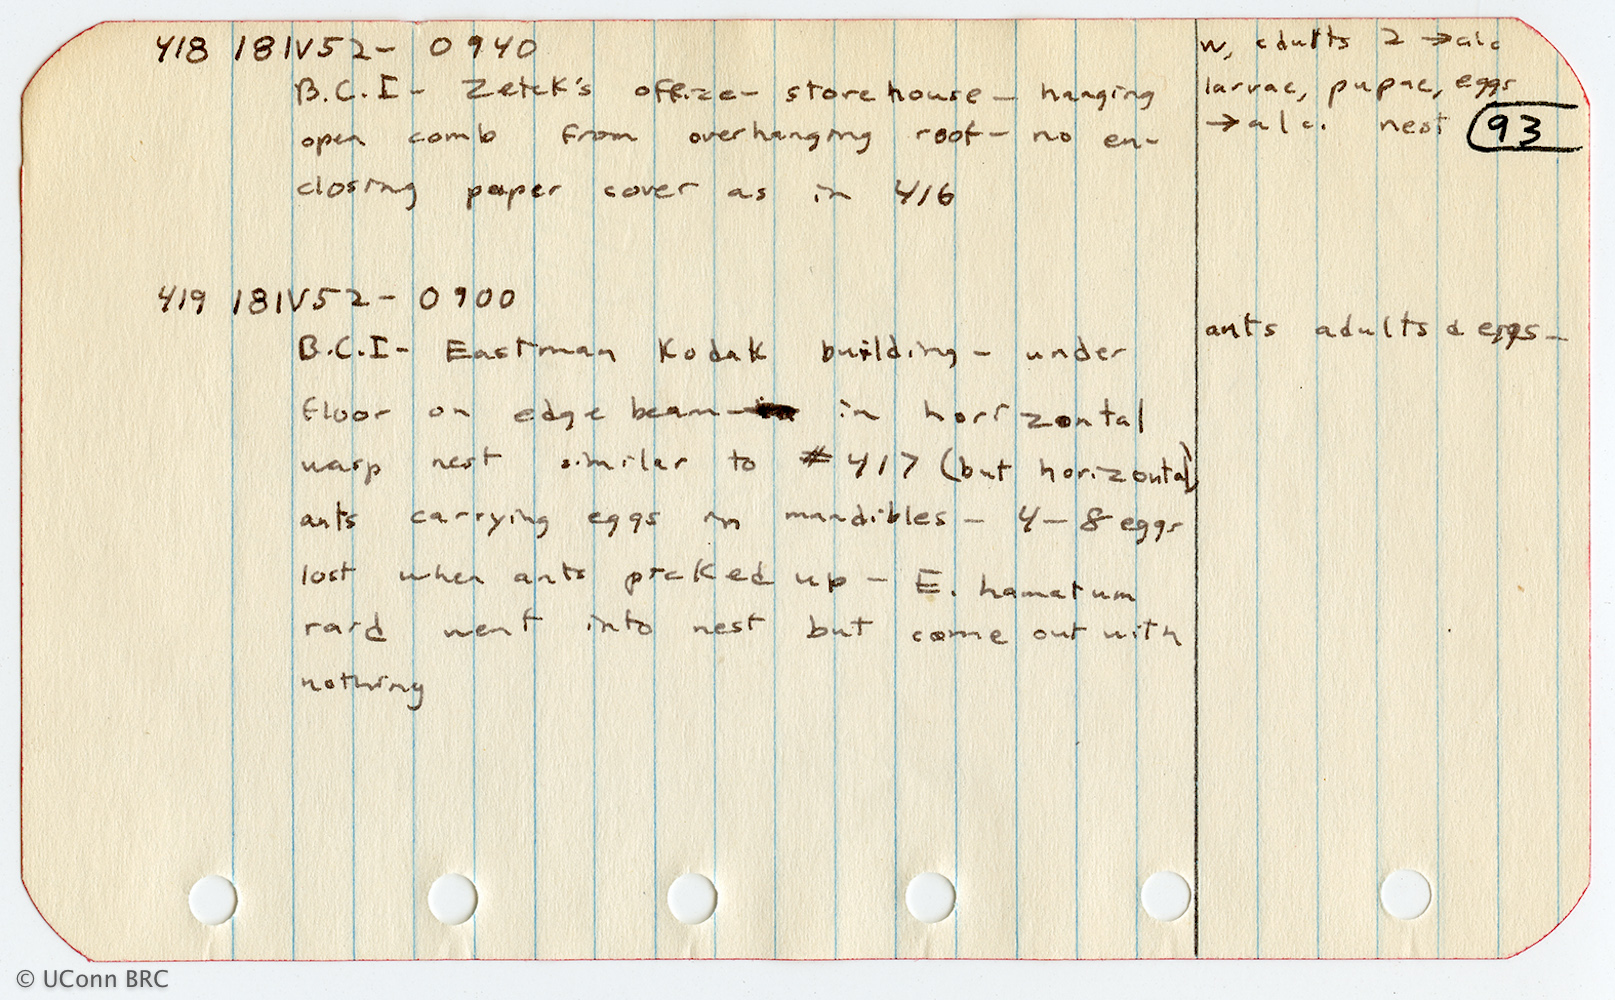 418 18IV52- 0940
B.C.I- Zetek's office- storehouse- hanging
open comb from overhanging roof- no en-
closing paper cover as in 416
w, adults 2 →alc
larvae, pupae, eggs
→alc. nest 93
419 18IV52- 0900
B.C.I- Eastman Kodak building- under
floor on edge beam- in horizontal
wasp nest similar to #417 (but horizontal)
ants carrying eggs in mandibles- 4-8 eggs
lost when ants picked up- E. hamatum
raid went into nest but come out with
nothing
ants adults & eggs-
© UConn BRC